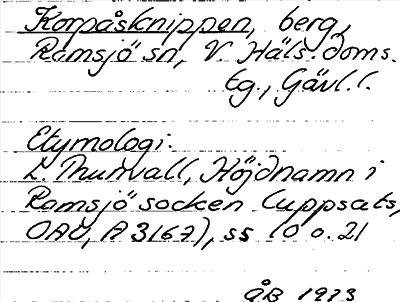 Korpåsknippen, berg,
Ramsjö sn, V. Häls. doms.
tg., Gävl. l.
Etymologi:
L. Thunvall, Höjdnamn i
Ramsjö socken (uppsats,
OAU, A 3167), ss 10 o. 21
ÅB 1973